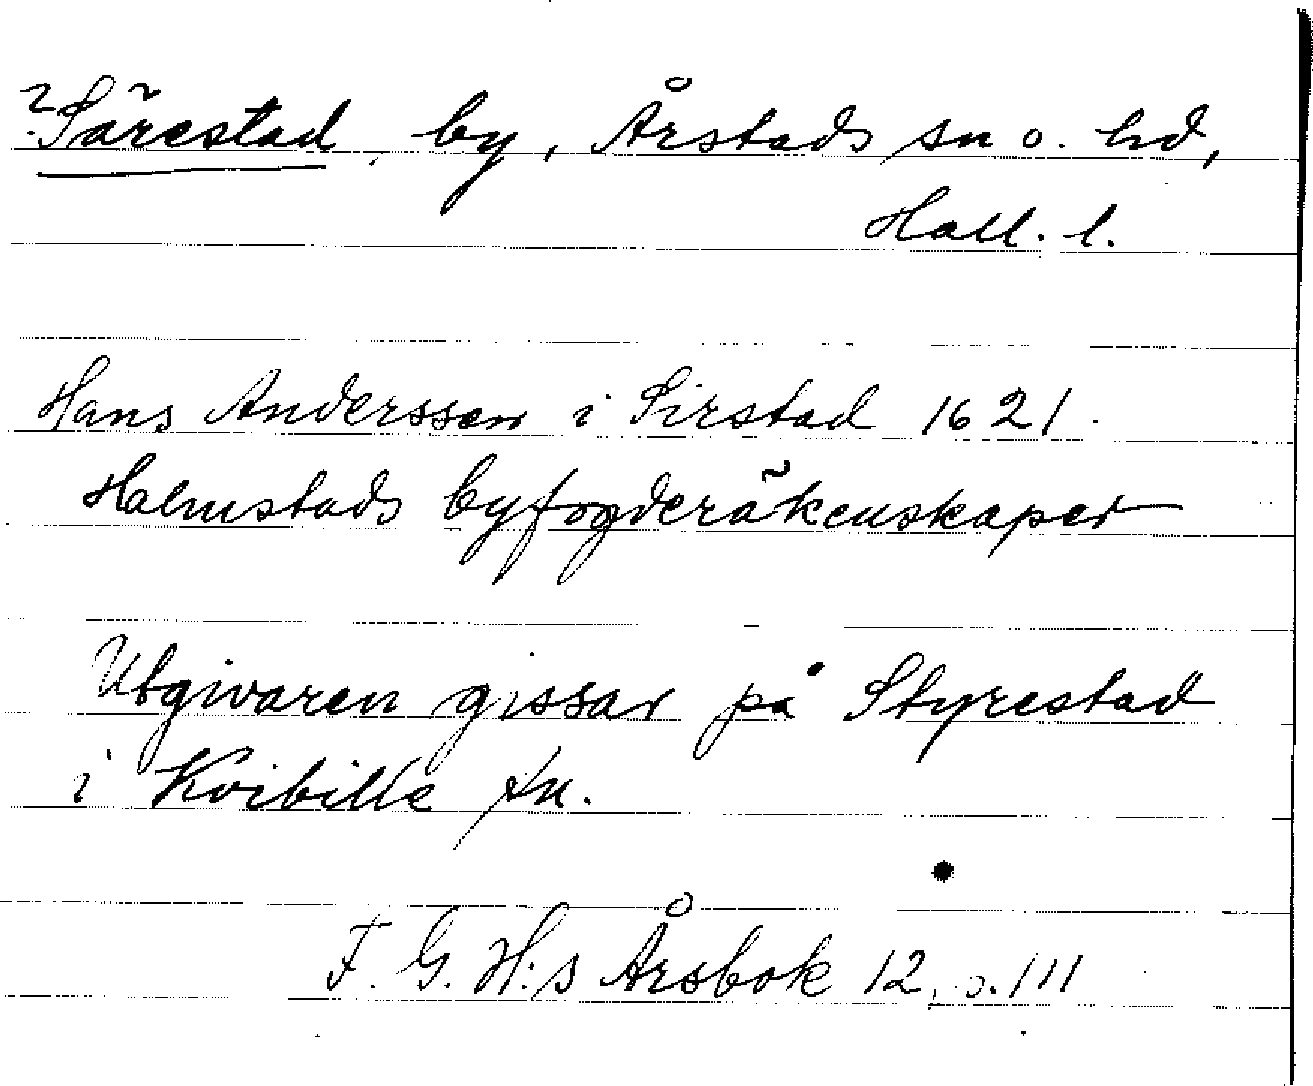 ? Särestad, by, Årstads sn o. hd,
Hall. l.
Hans Anderssen i Sirstad 1621.
Halmstads byfogderäkenskaper
Utgivaren gissar på Styrestad
i Kvibille sn.
F. G. H:s Årsbok 12, s. 111